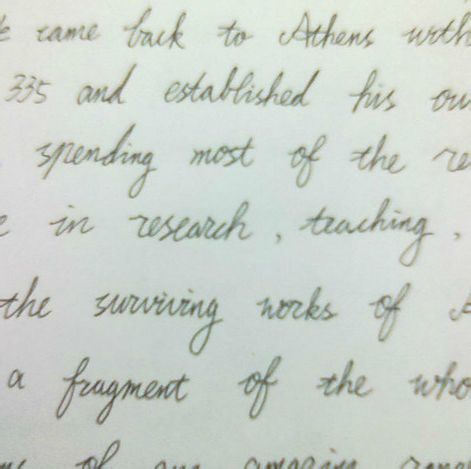 came back to Athens with
335 and established his
spending most of the
in research, teaching,
the surviving works of
a fragment of the
of an amazing